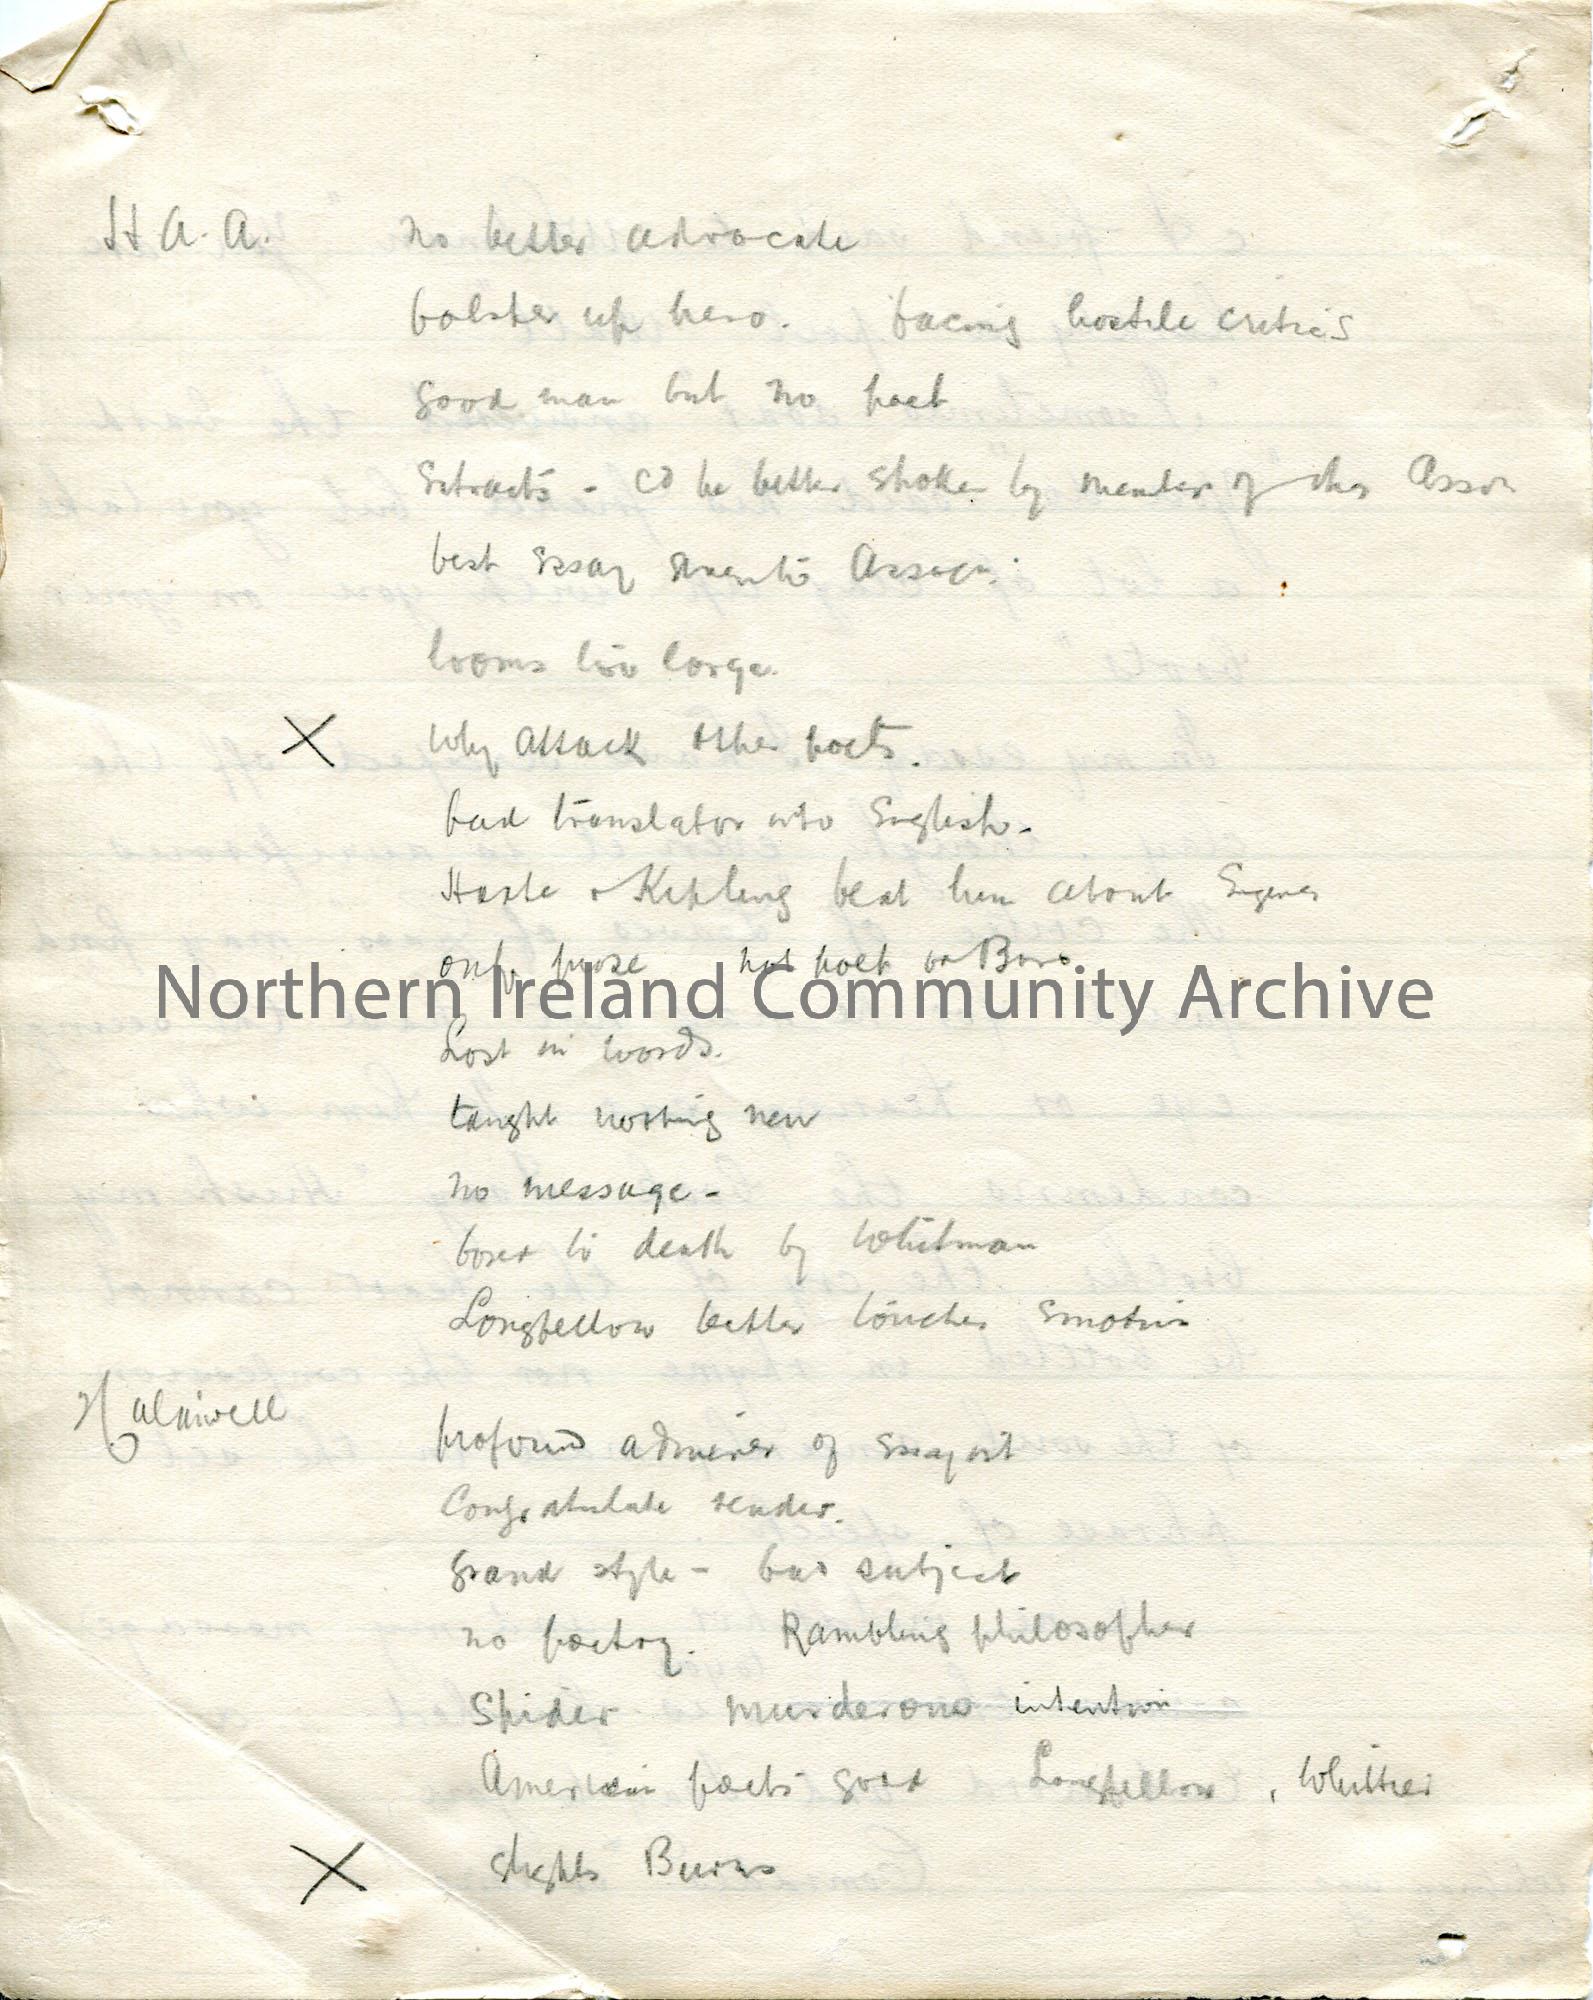 H A. A. no better advocate
bolster up hero. facing hostile critics
good man but no poet
Extracts - cd be better spoken by member of this Asson
best essay Assocn.
looms too large.
X Why attack other poets.
bad translator into English.
Harte & Kipling beat him about Engines
only prose not poet or Bard
Northern Ireland Community Archive
Lost in words.
taught nothing new
no message -
bored to death by Whitman
Longfellow better touches emotion
profound admirer of essayist
Congratulate reader.
Grand style - bad subject
no poetry. Rambling philosopher
Spider murderous intention
American poets good Longfellow, Whittier
X slights Burns